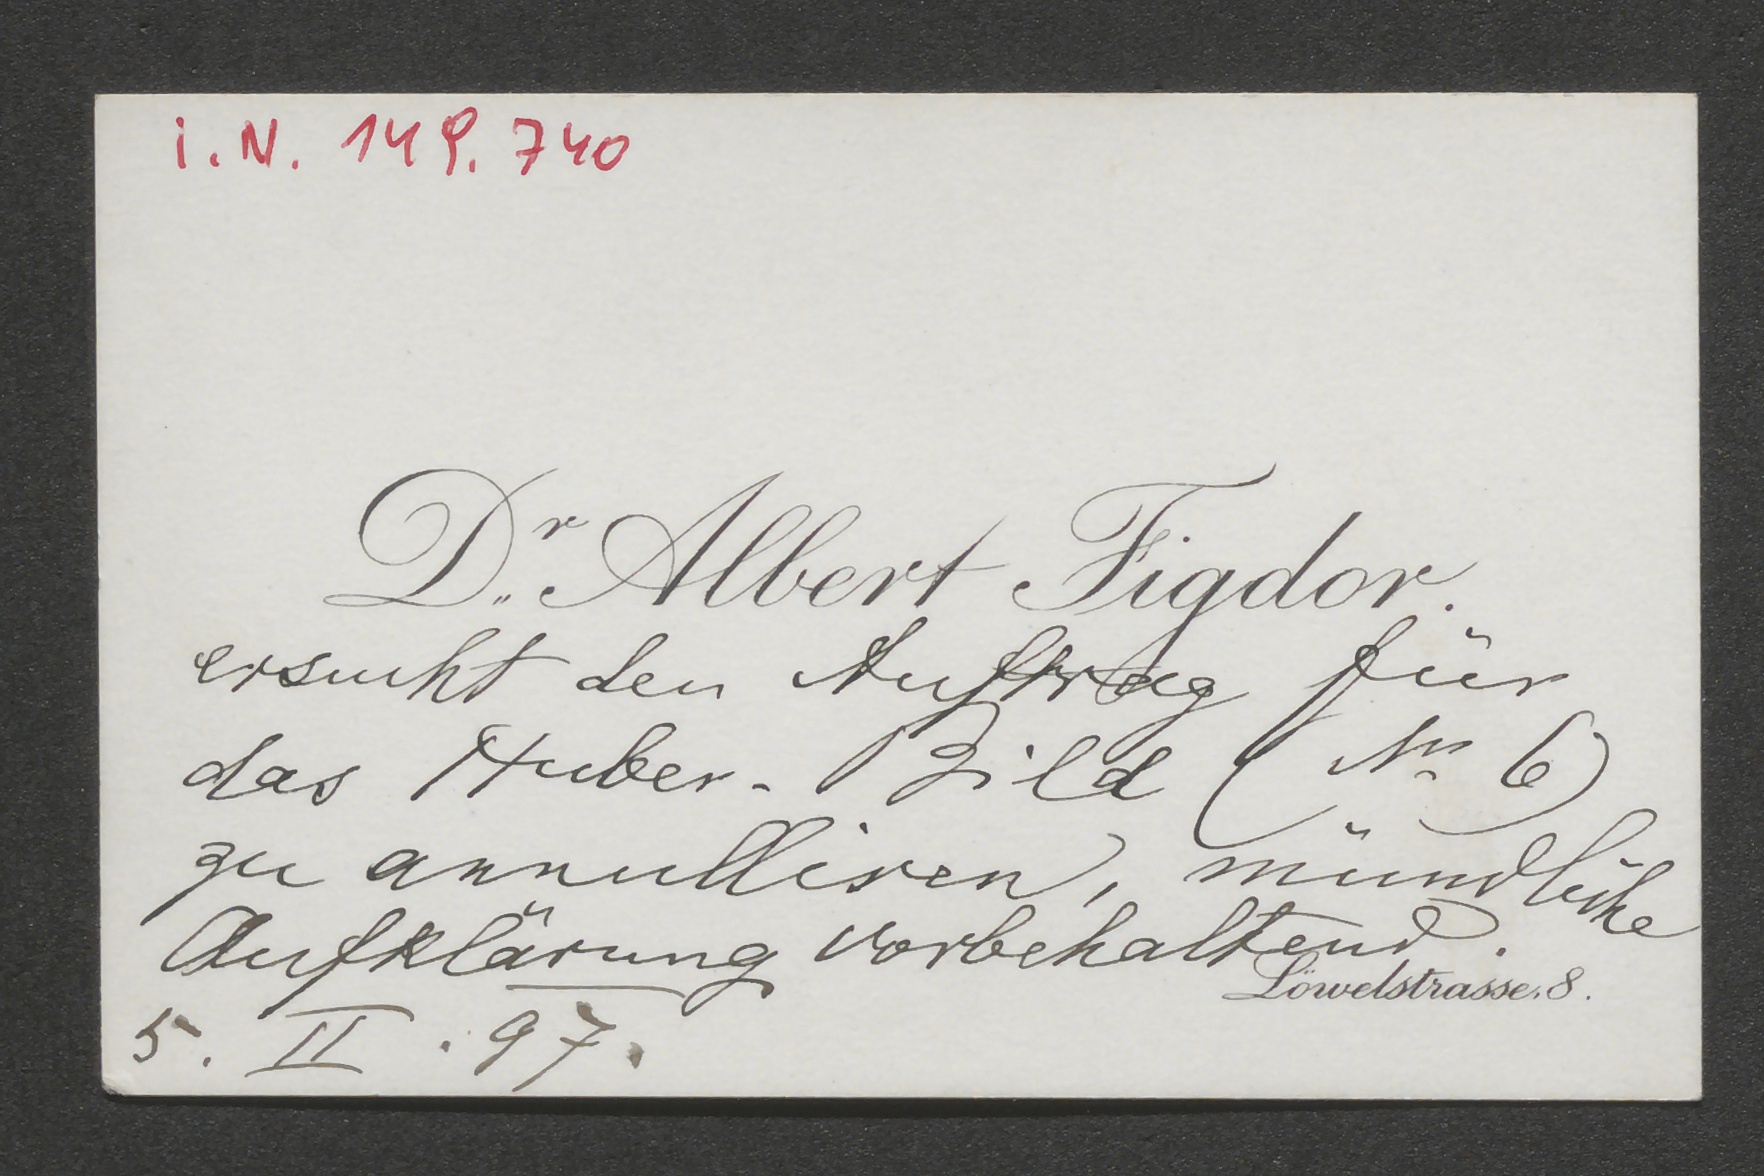 i. N. 149. 740
Dr. Albert Figdor.
ersucht den Auftrag für
das Huber-Bild (Nr. 6)
zu annulliren, mündliche
Aufklärung vorbehaltend.
Löwelstrasse. 8.
5. II. 97.